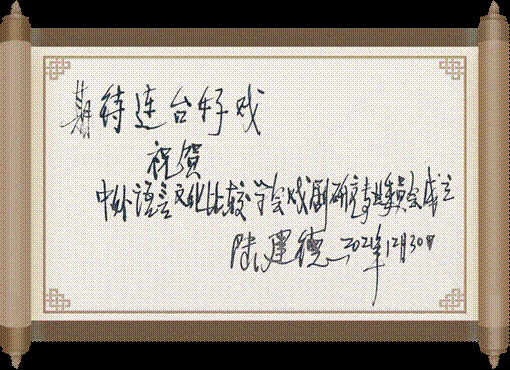 期待连台好戏
祝贺
中外语言文化比较学会戏剧研究专业委员会成立
陆建德 2021年12月30日